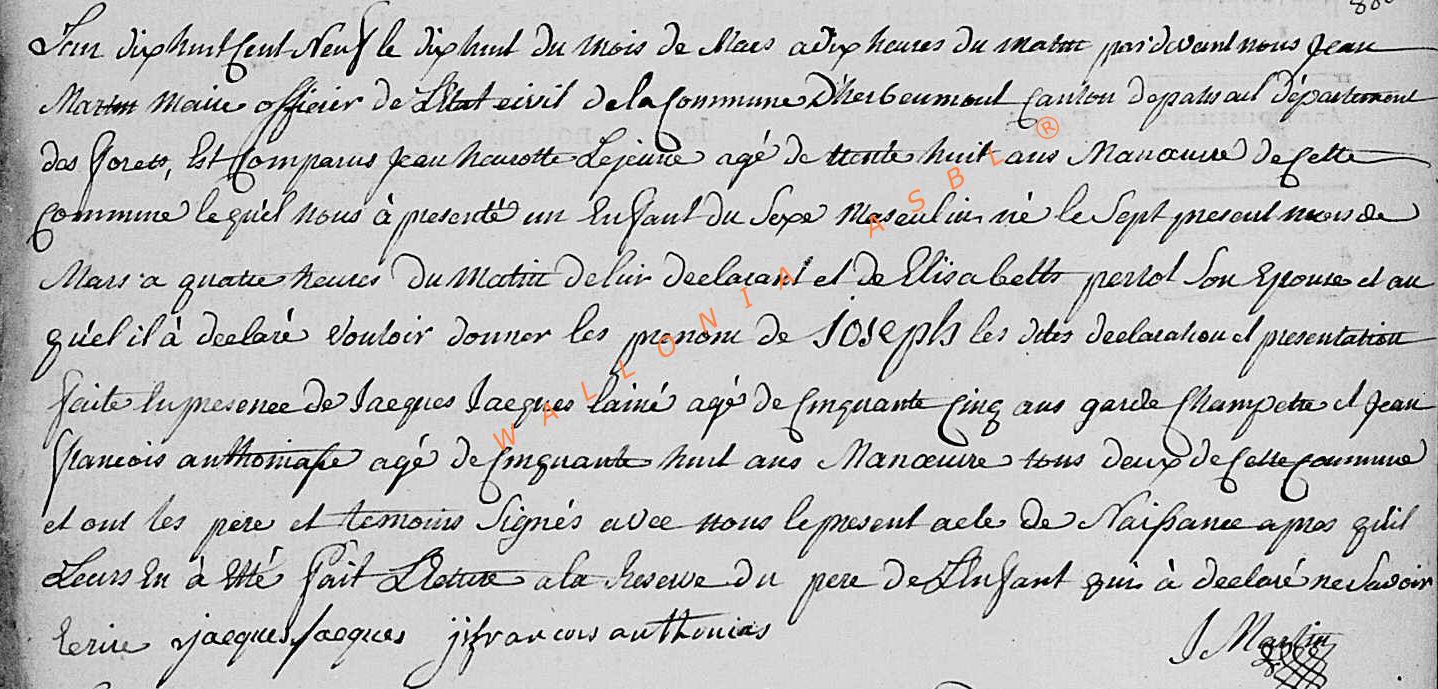 880
L'an dix huit Cent Neuf le dix huit du mois de Mars a dix heures du matin par devant nous Jean
Martin Maire officier de L'Etat civil de la Commune D'herbeumont Canton de paliseul département
des forets, Est Comparus Jean henrotte Lejeune agé de trente huit ans Manœuvre de Cette
Commune lequ'el nous à presenté un Enfant du Sexe Masculin né le Sept present mois de
Mars a quatre heures Du Matin de lui declarant et de Elisabeth perlot Son Epouse et au
qu'el il à declaré vouloir donner les prenom de Joseph les dites declaration et presentation
faite En presence de Jacques Jacques lainé agé de Cinquante Cinq ans garde Champetre et Jean
francois anthoniase agé de Cinquante huit ans Manœuvre tous deux de Cette Commune
et ont les pere et temoins Signés avec nous le present acte de Naissance apres qu'il
Leurs En à Etté fait Lecture a la Reserve du pere de L'Enfant qui à declaré ne Savoir
Ecrire jacques jacques j: francois anthonias J Martin
WALLONIA ASBL ®